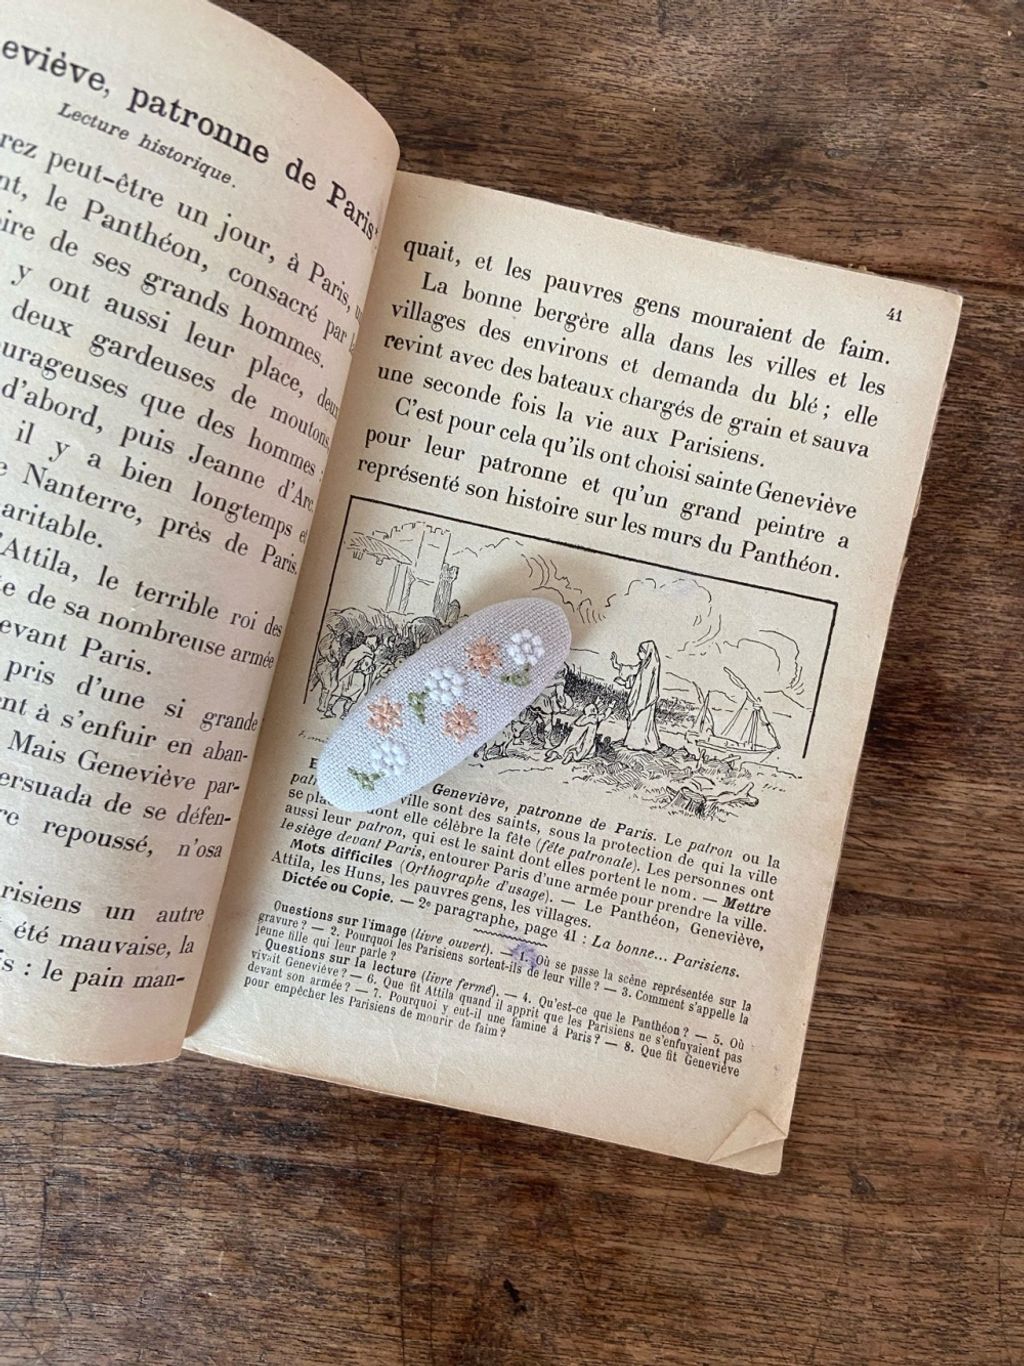 eviève, patronne de Paris.
Lecture historique.
rez peut-être un jour, à Paris,
nt, le Panthéon, consacré par
ire de ses grands hommes.
y ont aussi leur place, deux
deux gardeuses de moutons,
urageuses que des hommes :
d'abord, puis Jeanne d'Arc.
il y a bien longtemps
Nanterre, près de Paris.
aritable.
'Attila, le terrible roi des
te de sa nombreuse armée
evant Paris.
pris d'une si grande
ent à s'enfuir en aban-
Mais Geneviève par-
ersuada de se défen-
re repoussé, n'osa
risiens un autre
été mauvaise, la
s : le pain man-
41
quait, et les pauvres gens mouraient de faim.
La bonne bergère alla dans les villes et les
villages des environs et demanda du blé ; elle
revint avec des bateaux chargés de grain et sauva
une seconde fois la vie aux Parisiens.
C'est pour cela qu'ils ont choisi sainte Geneviève
pour leur patronne et qu'un grand peintre a
représenté son histoire sur les murs du Panthéon.
Geneviève, patronne de Paris. Le patron ou la
ville sont des saints, sous la protection de qui la ville
se place dont elle célèbre la fête (fête patronale). Les personnes ont
aussi leur patron, qui est le saint dont elles portent le nom. — Mettre
le siège devant Paris, entourer Paris d'une armée pour prendre la ville.
Mots difficiles (Orthographe d'usage). — Le Panthéon, Geneviève,
Attila, les Huns, les pauvres gens, les villages.
Dictée ou Copie. — 2e paragraphe, page 41 : La bonne... Parisiens.
Questions sur l'image (livre ouvert). — 1. Où se passe la scène représentée sur la
gravure ? — 2. Pourquoi les Parisiens sortent-ils de leur ville ? — 3. Comment s'appelle la
jeune fille qui leur parle ?
Questions sur la lecture (livre fermé). — 4. Qu'est-ce que le Panthéon ? — 5. Où
vivait Geneviève ? — 6. Que fit Attila quand il apprit que les Parisiens ne s'enfuyaient pas
devant son armée ? — 7. Pourquoi y eut-il une famine à Paris ? — 8. Que fit Geneviève
pour empêcher les Parisiens de mourir de faim ?